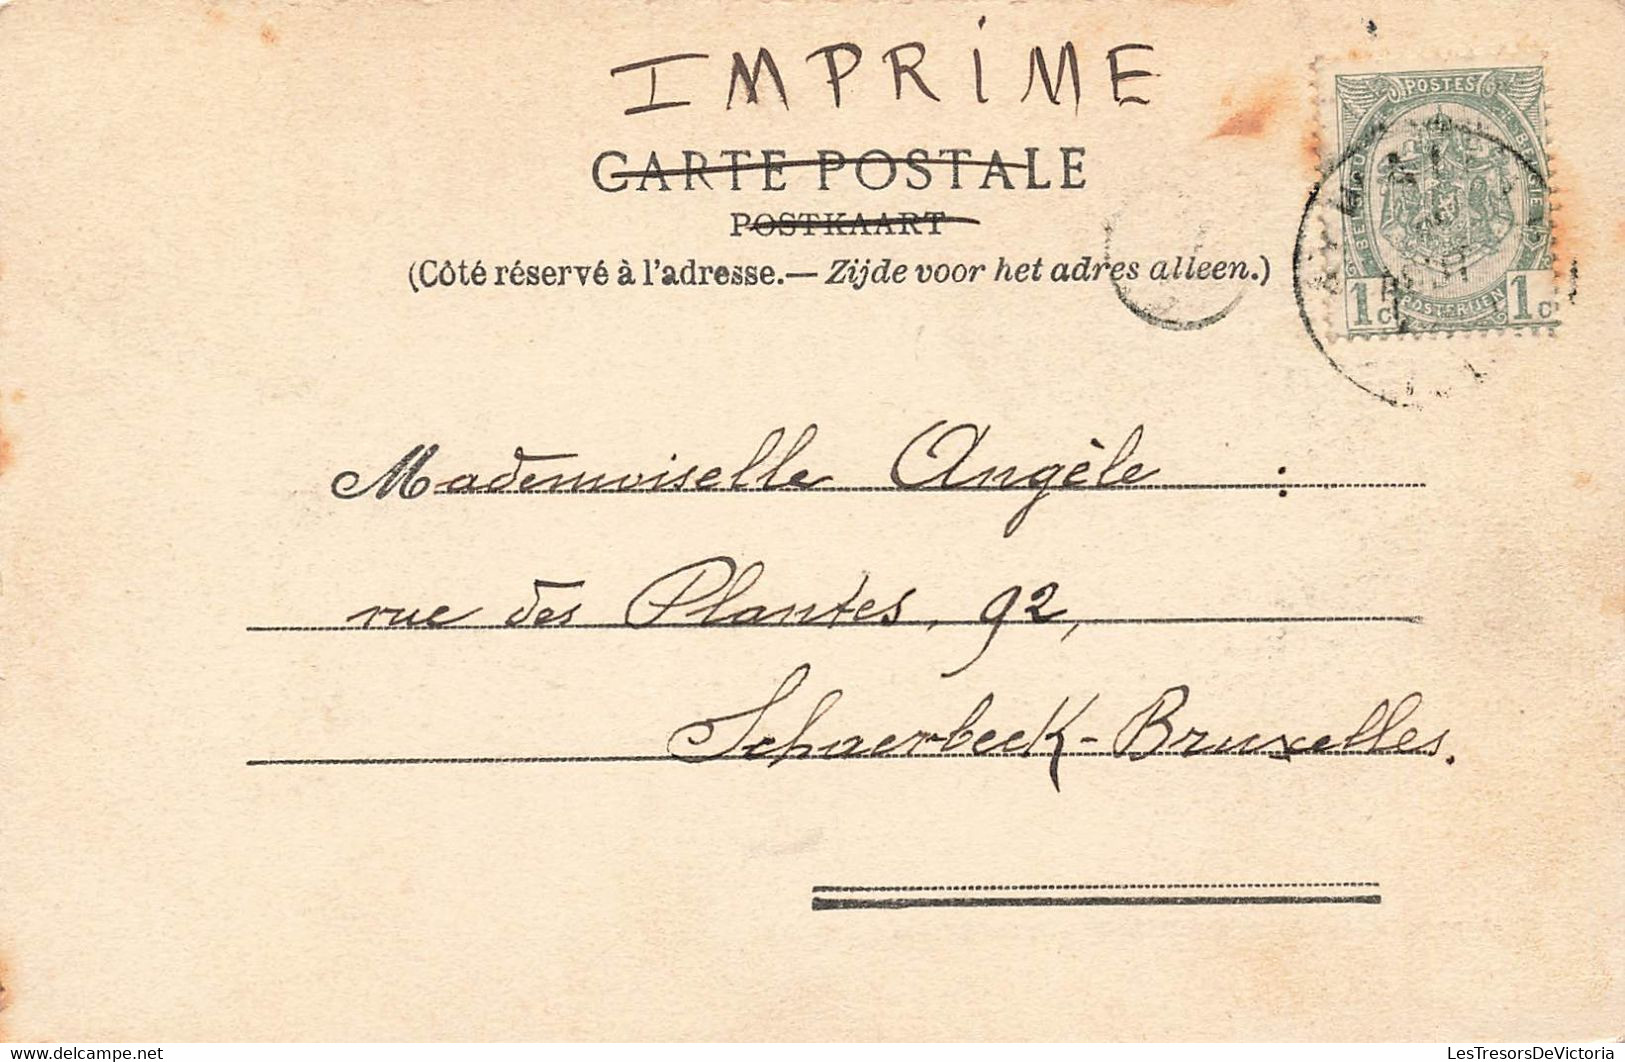 IMPRIME
CARTE POSTALE
POSTKAART
(Côté réservé à l'adresse.— Zijde voor het adres alleen.)
POSTES
BELGIQUE BELGIE
1c POSTERIJEN 1c
Mademoiselle Angèle :
rue des Plantes, 92,
Schaerbeek-Bruxelles.
delcampe.net
LesTresorsDeVictoria